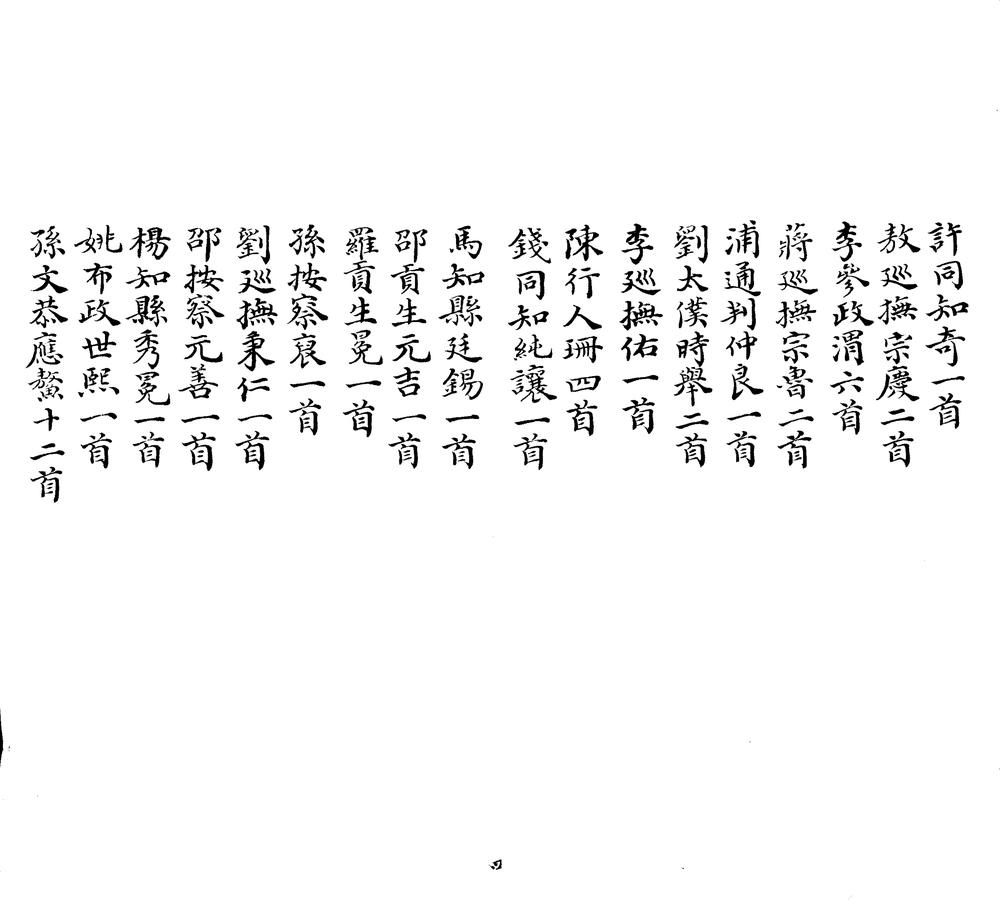 許同知奇一首
敖巡撫宗慶二首
李參政渭六首
蔣巡撫宗魯二首
浦通判仲良一首
劉太僕時舉二首
李巡撫佑一首
陳行人珊四首
錢同知純讓一首
馬知縣廷錫一首
邵貢生元吉一首
羅貢生冕一首
孫按察裒一首
劉巡撫秉仁一首
邵按察元善一首
楊知縣秀冕一首
姚布政世熙一首
孫文恭應鰲十二首
四